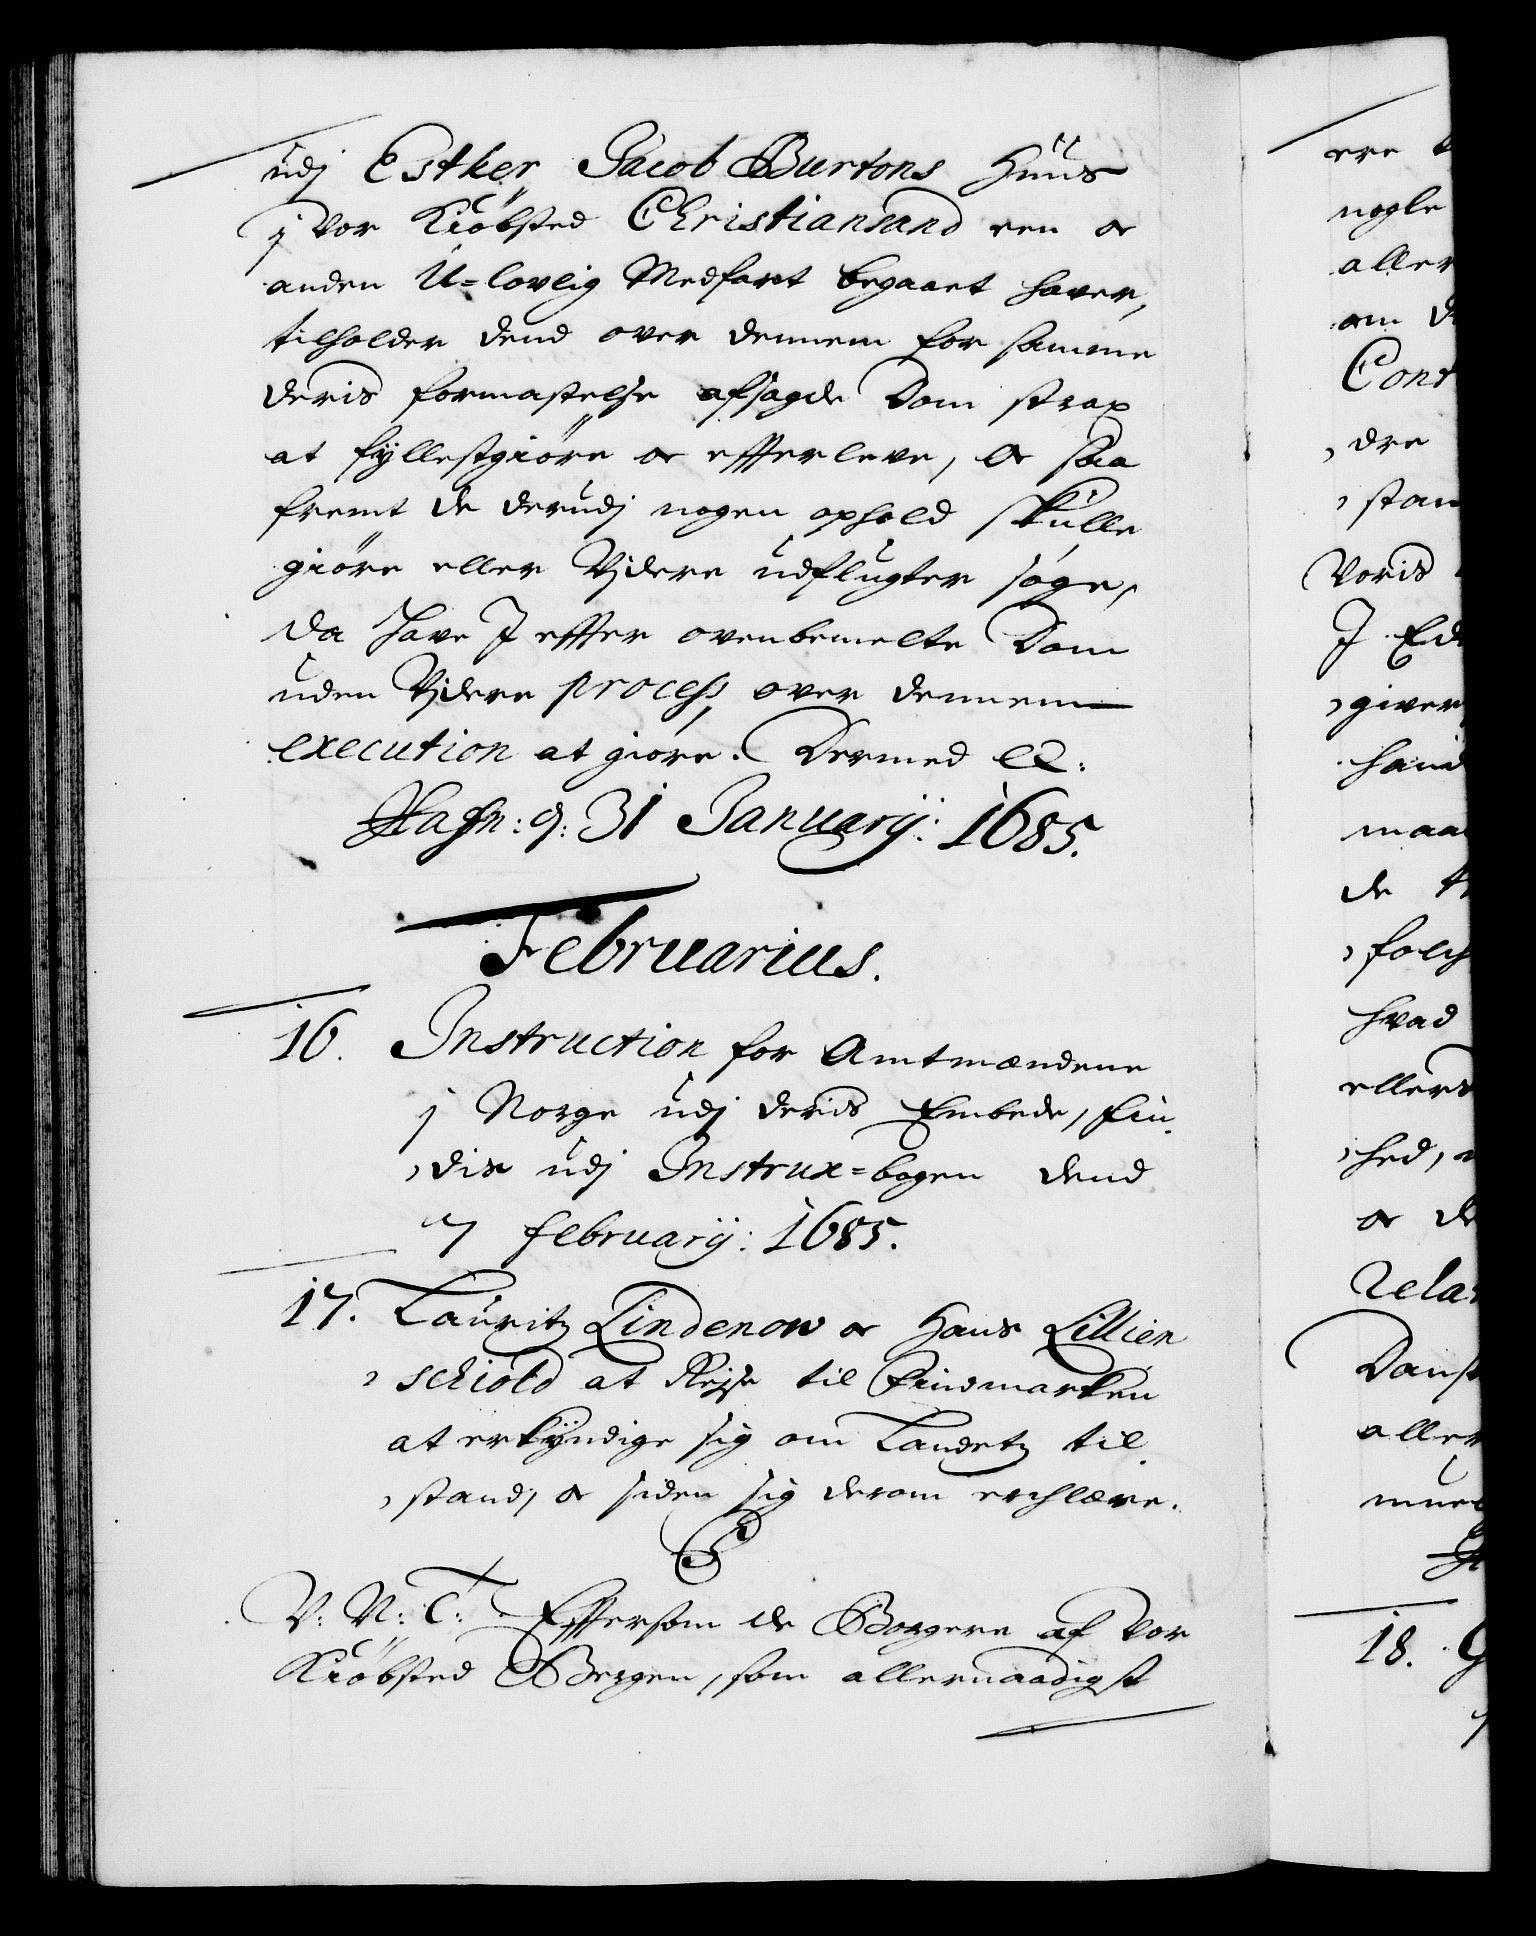 udj Esther Jacob Burtons Huus
j vor Kiöbsted Christiansand een oc
anden U=lovlig Medfart begaaet hafver,
tilholder dend over dennem for samme
deris formastelse afsagde Dom strax
at fyllestgiöre oc effterleve, Oc saa
fremt de derudj nogen ophold skulle
giöre eller Vjdere udflugter söge,
da have I effter ovenbemelte Dom
uden Vjdere process, over dennem
execution at giöre. Dermed etc:
Hafn: d: 31 Januarij: 1685.
Februarius.
16. Instruction for Amtmændene
j Norge udj deris Embede, fin,
,dis udj Instrux=bogen dend
7 februarij: 1685.
17. Lauritz Lindenow oc Hans Lillien
,schiold at Rejse til Findmarken
at erkyndige sig om Landetz til,
,stand, oc siden sig derom erchlære.
C5
V: N: T: Efftersom de Borgere af Vor
Kiöbsted Bergen, som allernaadigst
ere
nogle
aller
om
Cont
,dre
,stan
Voris
I
,giver
maa
de
,folch
hvad
ellers
,hed,
oc de
Rela
Dansk
aller
18.